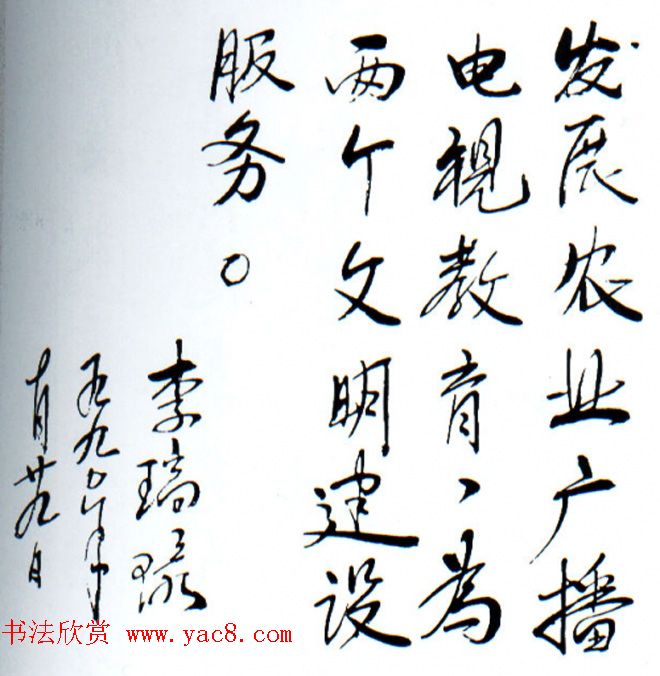 发展农业广播
电视教育、为
两个文明建设
服务。
李瑞环
一九九〇年
十月廿九日
书法欣赏 www.yac8.com